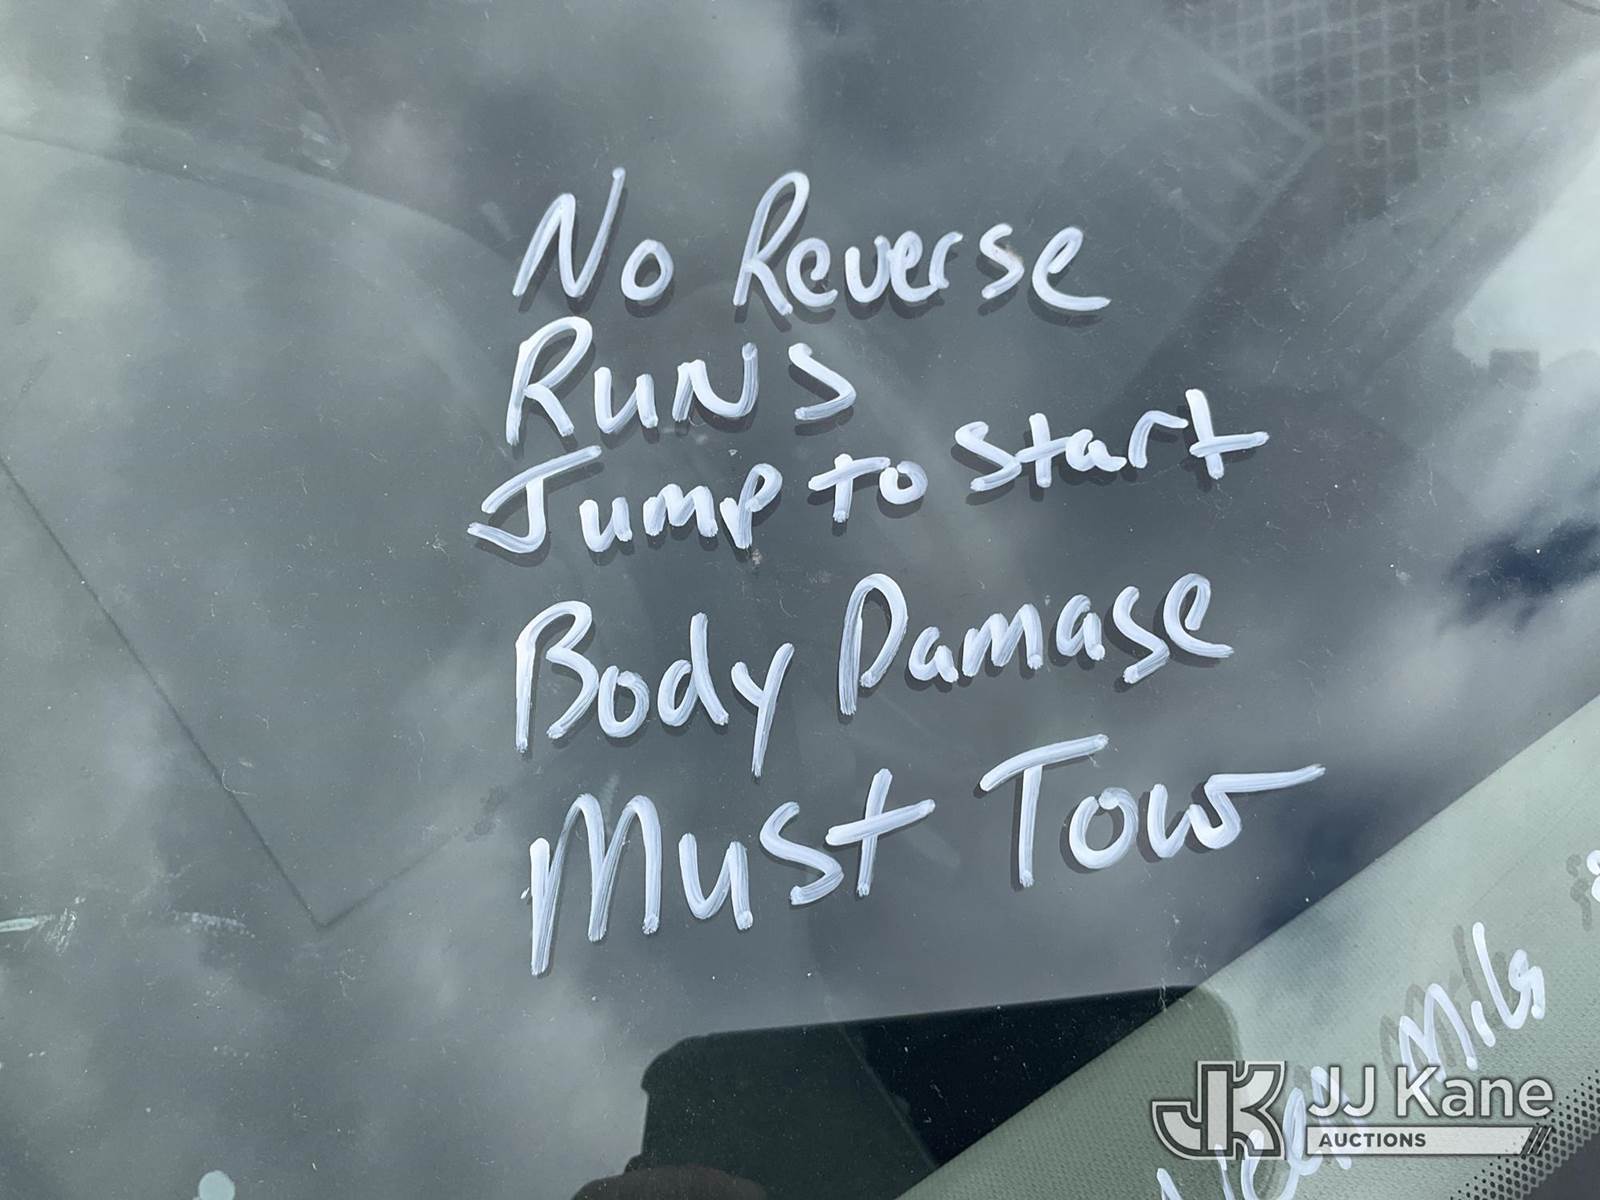 No Reverse
Runs
Jump to start
Body Damage
Must Tow
Mils
JK JJ Kane
AUCTIONS